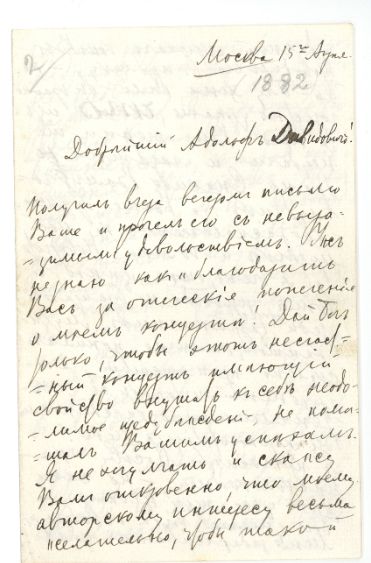 2
Москва 15го Апрл.
1882
Добрѣйшій Адольфъ Давидовичъ!
Получилъ вчера вечеромъ письмо
Ваше и прочелъ его съ невыра-
=зимымъ удовольствіемъ. Ужъ
не знаю какъ и благодарить
Васъ за отеческія попеченія
о моемъ концертѣ! Дай Богъ
только, чтобы этотъ несчаст-
=ный концертъ имѣющій
свойство внушать къ себѣ необо-
=лимое предубѣжденіе, не помѣ-
=шалъ Вашимъ успѣхамъ.
Я не хочу лгать и скажу
Вамъ откровенно, что моему
авторскому интересу весьма
желательно, чтобы такой